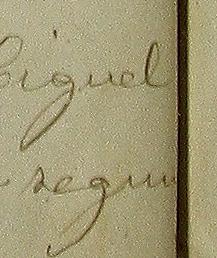 Miguel
segun